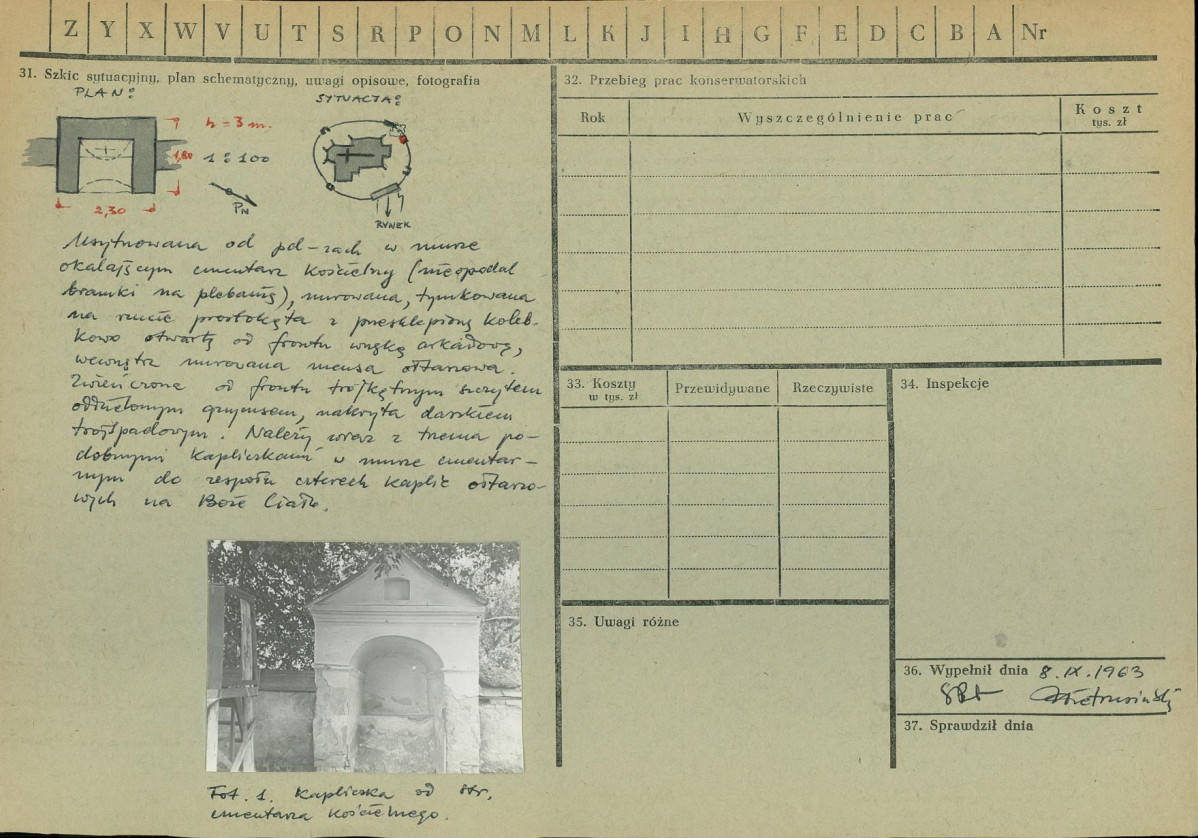 Z Y X W V U T S R P O N M L K J I H G F E D C B A Nr
31. Szkic sytuacyjny, plan schematyczny, uwagi opisowe, fotografia
PLAN:
SYTUACJA:
h = 3 m.
1,80
1 : 100
2,30
PN
RYNEK
Usytuowana od pd-zach w murze
okalającym cmentarz kościelny (nieopodal
bramki na plebanię), murowana, tynkowana
na rzucie prostokąta z przesklepioną koleb-
kowo otwartą od frontu wnęką arkadową,
wewnątrz murowana mensa ołtarzowa.
Zwieńczona od frontu trójkątnym szczytem
oddzielonym gzymsem, nakryta daszkiem
trójspadowym. Należy wraz z trzema po-
dobnymi kapliczkami w murze cmentar-
nym do zespołu czterech kaplic ołtarzo-
wych na Boże Ciało.
Fot. 1. Kapliczka od str.
cmentarza kościelnego.
32. Przebieg prac konserwatorskich
Rok
Wyszczególnienie prac
Koszt
tys. zł
33. Koszty
w tys. zł
Przewidywane
Rzeczywiste
34. Inspekcje
35. Uwagi różne
36. Wypełnił dnia 8.IX.1963
37. Sprawdził dnia